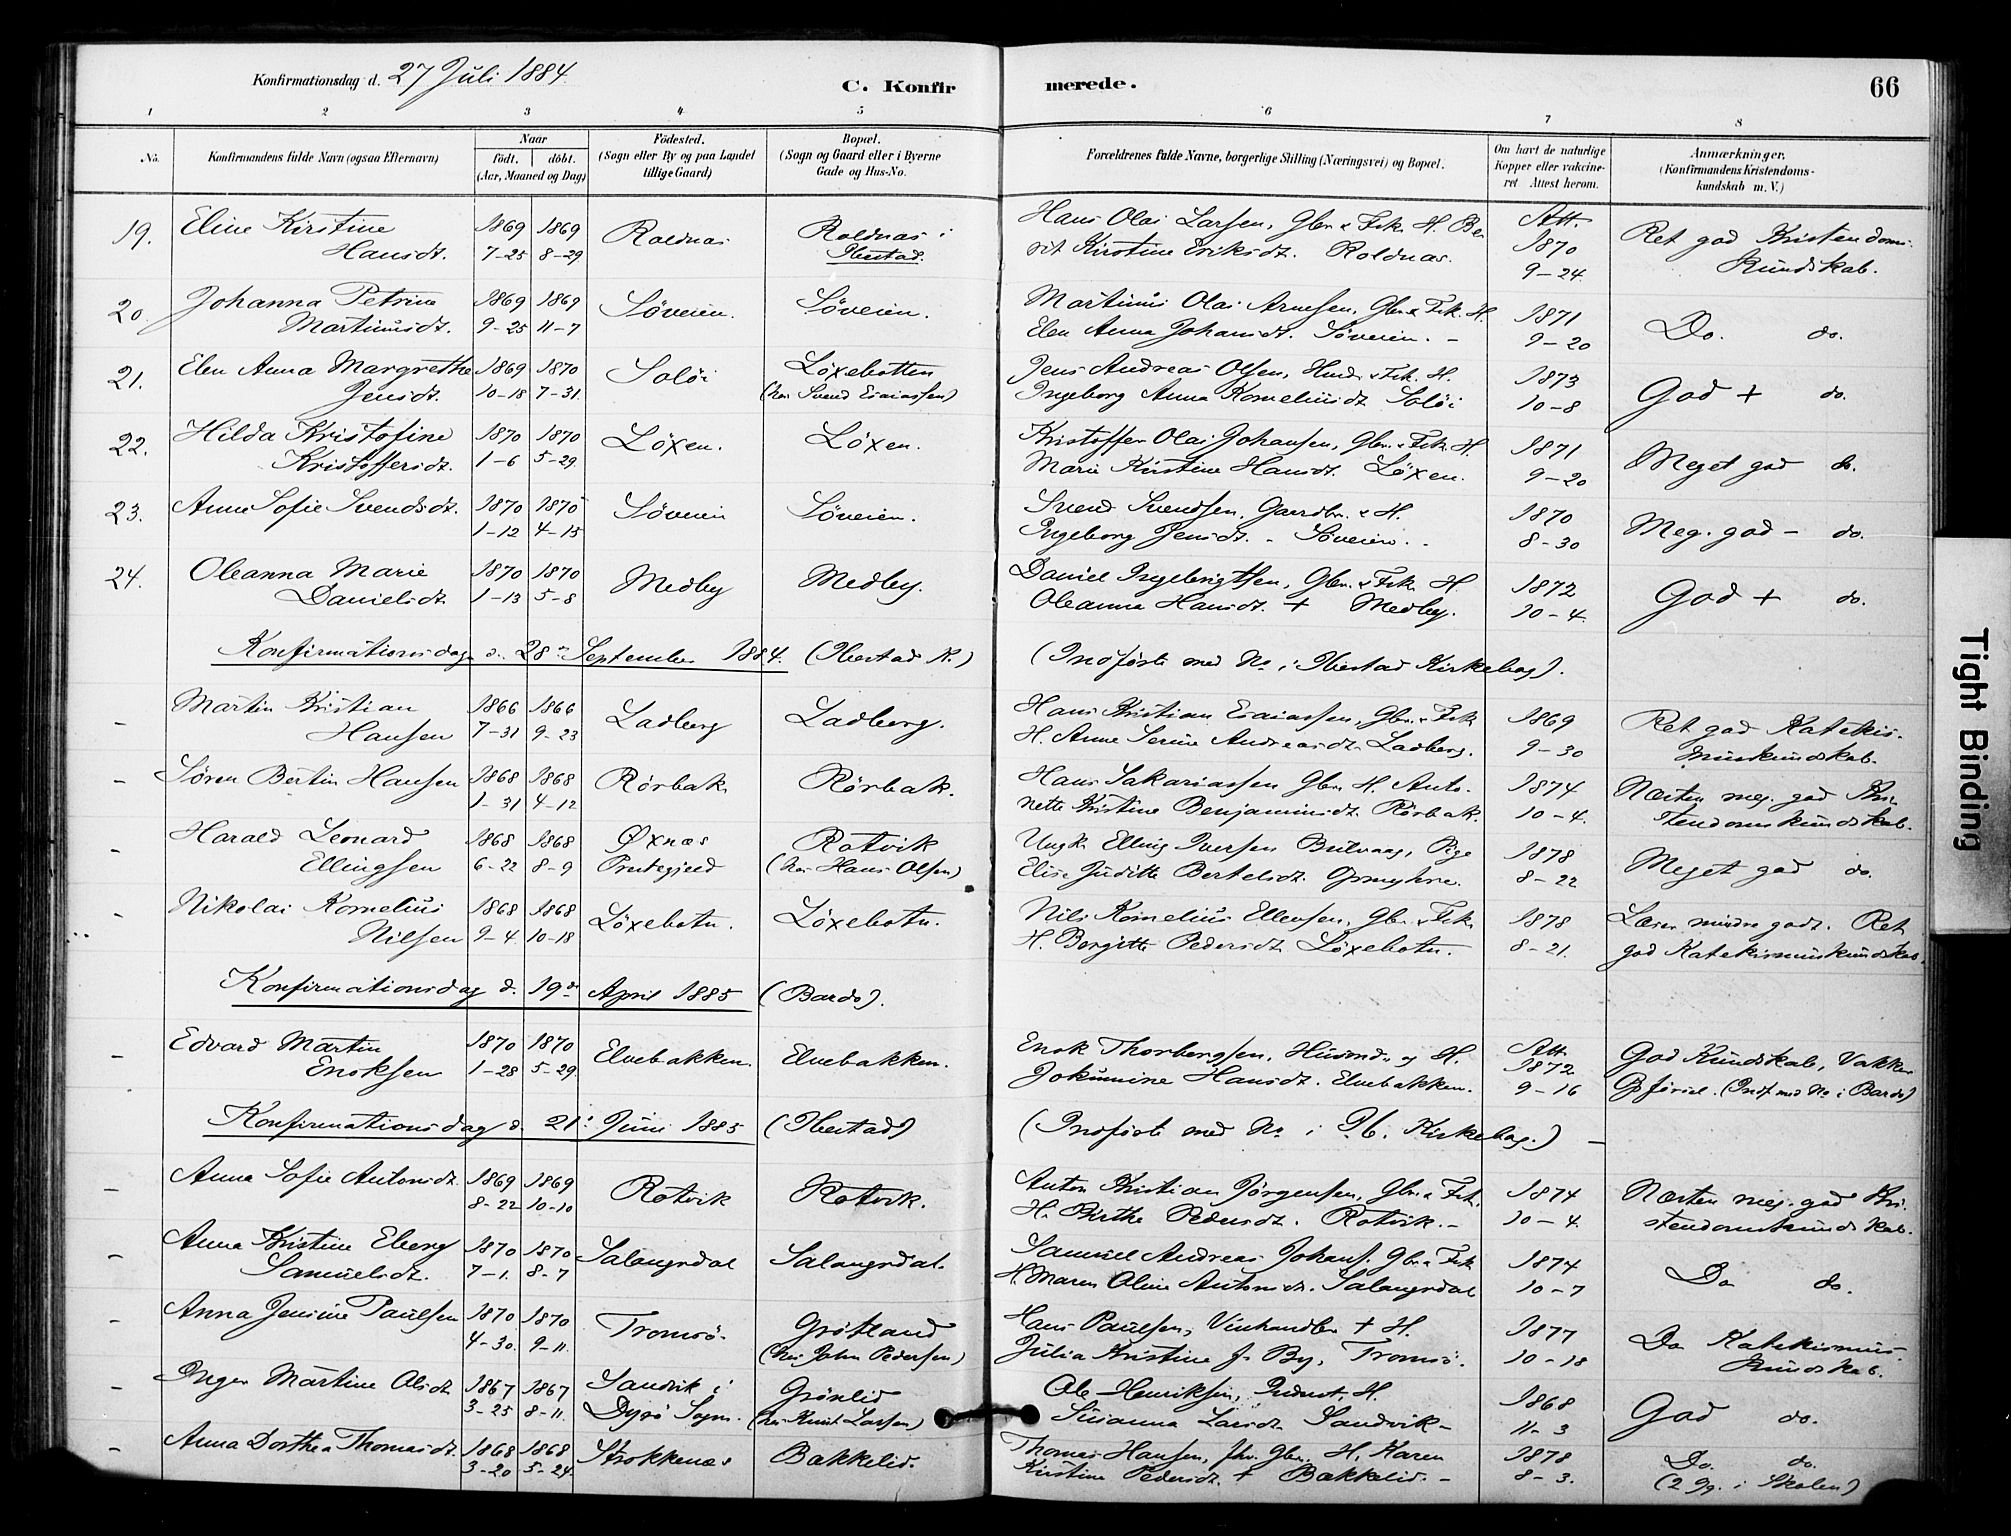 Konfirmationsdag d. 27 Juli 1884.
C. Konfirmerede.
66
1 2 3 4 5 6 7 8
No. Konfirmandens fulde Navn (ogsaa Efternavn) Naar født. døbt. (Aar, Maaned og Dag) Fødested. (Sogn eller By og paa Landet tillige Gaard) Bopæl. (Sogn og Gaard eller i Byerne Gade og Hus-No. Forældrenes fulde Navne, borgerlige Stilling (Næringsvei) og Bopæl. Om havt de naturlige Kopper eller vakcineret Attest herom. Anmærkninger. (Konfirmandens Kristendomskundskab m. V.)
19. Eline Kirstine 1869 1869 Roldnas Roldnas i Hans Olai Larsen, Gbr. & Fsk. H. Be Att. Ret god Kristendoms-
Hansdt. 7-25 8-29 Ibestad. rit Kirstine Eriksdt. Roldnas. 1870 9-24 kundskab.
20. Johanna Petrine 1869 1869 Söveien. Söveien. Martinus Olai Arnesen, Gbr & Fsk. H. 1871 Do. do.
Martinusdt. 9-25 11-7 Elen Anna Johansdt. Söveien. - 9-20
21. Elen Anna Margrethe 1869 1870 Solöi Löxebotten Jens Andreas Olsen, Husm. & Fsk. H. 1873 God + do.
Jensdt. 10-18 7-31 (hos Svend Esaiassen) Ingeborg Anna Korneliusdt Solöi 10-8
22. Hilda Kristofine 1870 1870 Löxen. Löxen. Kristoffer Olai Johansen, Gbr. & Fsk. H. 1871 Meget god do.
Kristoffersdt. 1-6 5-29 Marie Kristine Hansdt. Löxen. 9-20
23. Anne Sofie Svendsdt. 1870 1870 Söveien Söveien. Svend Svendsen, Gaardbr. & H. 1870 Meg. god - do.
1-12 4-15 Ingeborg Jensdt. - Söveien. - 8-30
24. Oleanna Marie 1870 1870 Medby Medby. Daniel Ingebrigtsen, Gbr. & Fsk H. 1872 God + do.
Danielsdt 1-13 5-8 Oleanna Hansdt. + Medby. 10-4
Konfirmationsdag d. 28de September 1884. (Ibestad K.) (Indförte med No i Ibestad Kirkebog).
- Martin Kristian 1866 1866 Ladberg Ladberg. Hans Kristian Esaiassen, Gbr. & Fsk 1869 Ret god Katekis-
Hansen 7-31 9-23 H. Anne Serine Andreasdt. Ladberg. 9-30 muskundskab.
- Sören Bertin Hansen 1868 1868 Rörbak Rörbak. Hans Sakariassen Gbr H. Anto- 1874 Næsten meg. god Kri-
1-31 4-12 nette Kristine Benjaminsdt. Rörbak. 10-4. stendomskundskab.
- Harald Leonard 1868 1868 Øxnæs Rotvik Ungk. Elling Iversen, Pige 1878 Meget god do.
Ellingsen 6-22 8-9 Præstegjeld (hos Hans Olsen) Elise Juditte Bertelsdt. 8-22
- Nikolai Kornelius 1868 1868 Löxebotn. Löxebotn. Nils Kornelius Ellensen, Gbr. & Fsk. 1878 Læser mindre godt. Ret
Nilsen 9-4. 10-18 H. Bergitte Pedersdt. Löxebotn. 8-21. god Katekismuskundskab.
Konfirmationsdag d. 19de April 1885 (Bardo).
- Edvard Martin 1870 1870 Elvebakken. Elvebakken. Enok Thorbergsen, Husmd. og H. Att. 1872 God Kundskab, Vakker
Enoksen 1-28 5-29. Jokumine Hansdt. Elvebakken. 9-16 Opförsel. (Indf. med No i Bardo)
Konfirmationsdag d. 21. Juni 1885 (Ibestad) (Indförte med No i Ib. Kirkebog.) -
- Anna Sofie Antonsdt. 1869 1869 Rotvik Rotvik. Anton Kristian Jörgensen, Gbr. & Fsk. 1874 Næsten meg. god Kri-
8-22 10-10 H. Birthe Pedersdt. Rotvik. - 10-4. stendomskundskab.
- Anna Kristine Eberg 1870 1870 Salangsdal Salangsdal. Samuel Andreas Johans. Gbr. & Fsk 1874 Do do.
Samuelsdt. 7-1. 8-7 H. Maren Oline Antonsdt. Salangsdal 10-7
- Anna Jensine Paulsen 1870 1870 Tromsö. Grötland Hans Paulsen, Vinhandler + H. 1877 Do Katekismus-
4-30. 9-11. (hos John Pedersen) Julia Kristine f. By, Tromsö. 10-18 kundskab.
- Inger Martine Olsdt 1867 1867 Sandvik i Grönlid Ole Henriksen, Inderst, H. 1868 God do.
3-25 8-11. Dyrö Sogn. (hos Knut Larsen) Susanna Larsdt. Sandvik - 11-3
- Anna Dorthea Thomasdt. 1868 1868 Strokkenæs Bakkelid. Thomas Hansen, fhv. Gbr. H. Karen 1878 Do. do.
3-20 5-24. Kirstine Pedersdt. + Bakkelid. - 8-3. (2 Gg. i Skolen)
Tight Binding